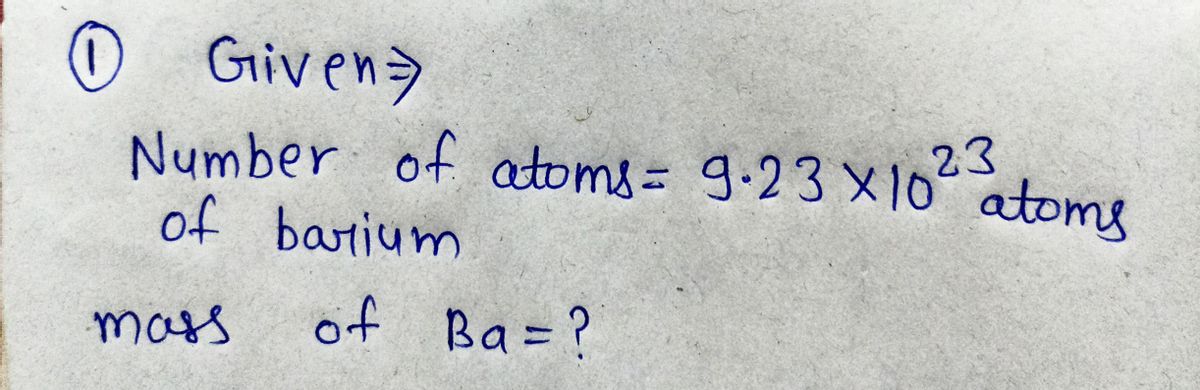 ① Given⇒
Number of atoms = 9.23 × 10²³ atoms
of barium
mass of Ba = ?